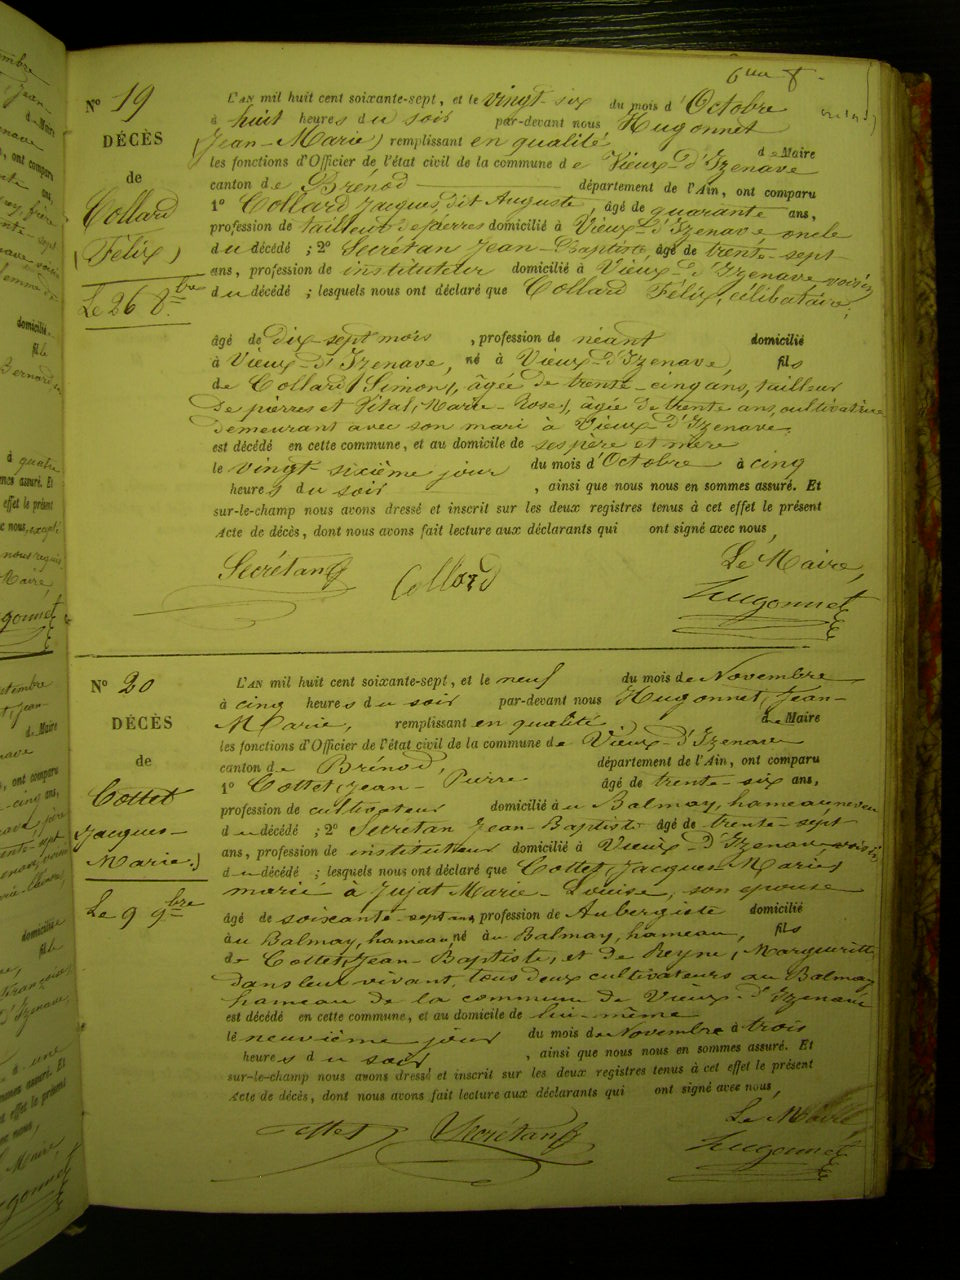 6me f.
No 19
DÉCÈS
de
Collard
(Félix)
Le 26 8.bre
L'AN mil huit cent soixante-sept, et le vingt-six du mois d'Octobre
à huit heures du soir par-devant nous Hugonnet
(Jean-Marie) remplissant en qualité de Maire
les fonctions d'Officier de l'état civil de la commune de Vieux-d'Izenave
canton de Brénod département de l'Ain, ont comparu
1º Collard Jacques, dit Auguste, âgé de quarante ans,
profession de tailleur de pierres domicilié à Vieux-d'Izenave oncle
du décédé ; 2º Secrétan Jean-Baptiste, âgé de trente-sept
ans, profession de instituteur domicilié à Vieux-d'Izenave, voisin
du décédé ; lesquels nous ont déclaré que Collard Félix, célibataire,
âgé de dix-sept mois , profession de néant domicilié
à Vieux-d'Izenave, né à Vieux-d'Izenave, fils
de Collard (Simon), âgée de trente-cinq ans, tailleur
de pierres et Vital (Marie-Rose), âgée de trente ans, cultivatrice
demeurant avec son mari à Vieux-d'Izenave.
est décédé en cette commune, et au domicile de ses père et mère
le vingt-sixième jour du mois d'Octobre à cinq
heures du soir , ainsi que nous nous en sommes assuré. Et
sur-le-champ nous avons dressé et inscrit sur les deux registres tenus à cet effet le présent
Acte de décès, dont nous avons fait lecture aux déclarants qui ont signé avec nous,
Le Maire,
Secrétan Collard Hugonnet
No 20
DÉCÈS
de
Cottet
Jacques-
Marie.)
Le 9 9bre
L'AN mil huit cent soixante-sept, et le neuf du mois de Novembre
à cinq heures du soir par-devant nous Hugonnet, Jean-
Marie, remplissant en qualité de Maire
les fonctions d'Officier de l'état civil de la commune de Vieux-d'Izenave
canton de Brénod, département de l'Ain, ont comparu
1º Cottet, Jean-Pierre âgé de trente-six ans,
profession de cultivateur domicilié àu Balmay, hameau neveu
du décédé ; 2º Secrétan Jean-Baptiste âgé de trente-sept
ans, profession de instituteur domicilié à Vieux-d'Izenave voisin
du décédé ; lesquels nous ont déclaré que Cottet, Jacques-Marie,
marié à Jujat Marie-Louise, son épouse
âgé de soixante-sept ans, profession de Aubergiste domicilié
àu Balmay, hameau né àu Balmay, hameau, fils
de Cottet, Jean-Baptiste, et de Reyne, Marguerite,
dans leur vivant, tous deux cultivateurs au Balmay
hameau de la commune de Vieux-d'Izenave
est décédé en cette commune, et au domicile de lui-même
le neuvième jour du mois de Novembre à trois
heures du soir , ainsi que nous nous en sommes assuré. Et
sur-le-champ nous avons dressé et inscrit sur les deux registres tenus à cet effet le présent
Acte de décès, dont nous avons fait lecture aux déclarants qui ont signé avec nous,
Le Maire,
Cottet Secrétan Hugonnet